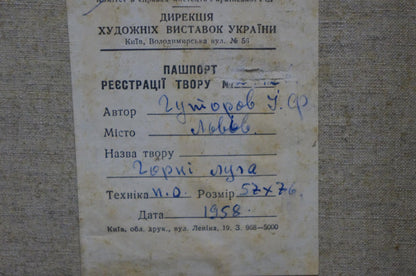 ДИРЕКЦІЯ
ХУДОЖНІХ ВИСТАВОК УКРАЇНИ
Київ, Володимирська вул. №
ПАШПОРТ
РЕЄСТРАЦІЇ ТВОРУ №
Автор Гуторов І. Ф
Місто Львів.
Назва твору
Гірні луга
Техніка п.о. Розмір 57х76.
Дата 1958.
Київ, обл. друк., вул. Леніна, 19. З. 968—5000